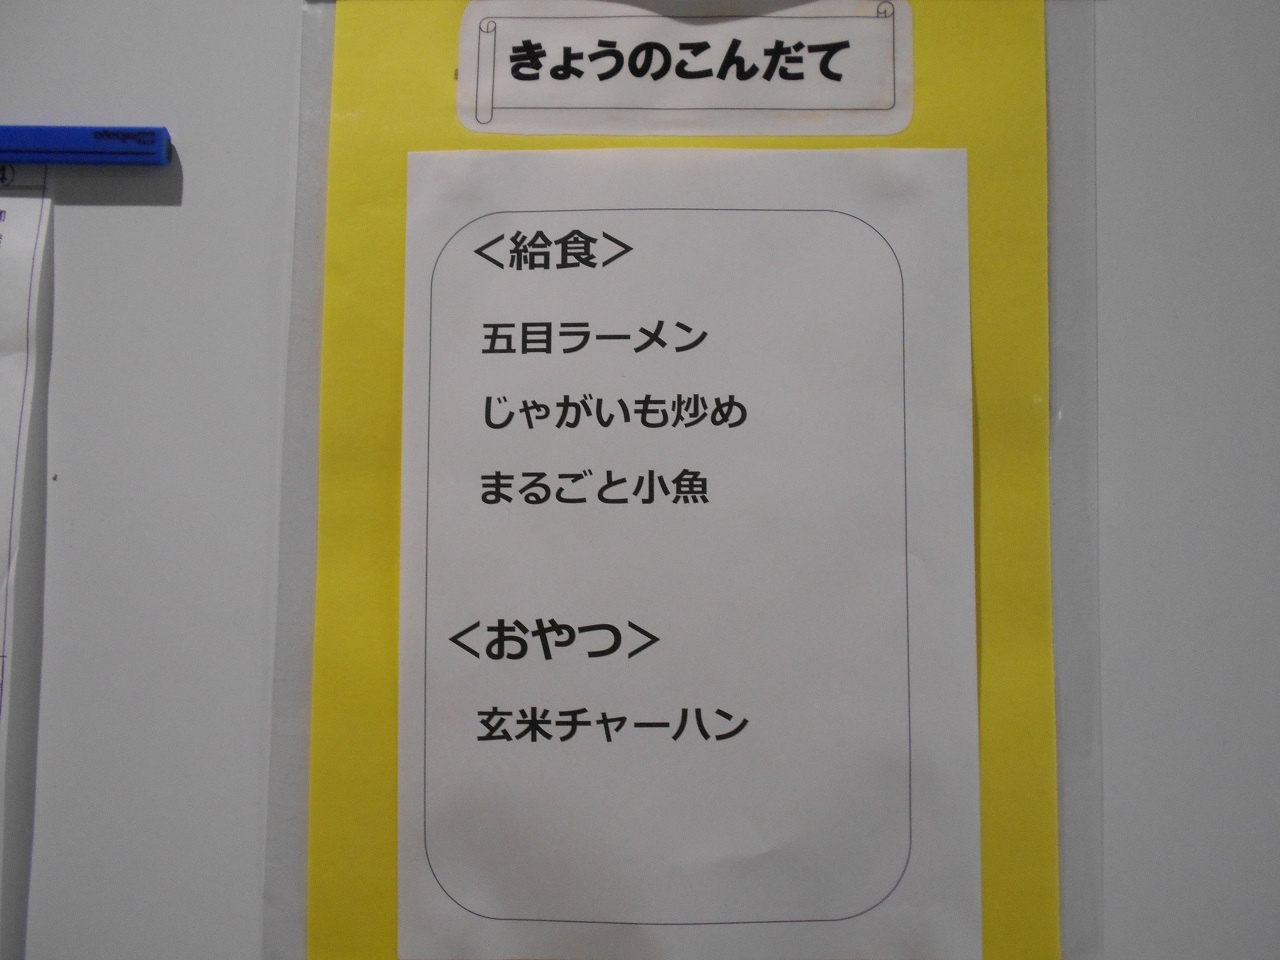 きょうのこんだて
＜給食＞
五目ラーメン
じゃがいも炒め
まるごと小魚
＜おやつ＞
玄米チャーハン